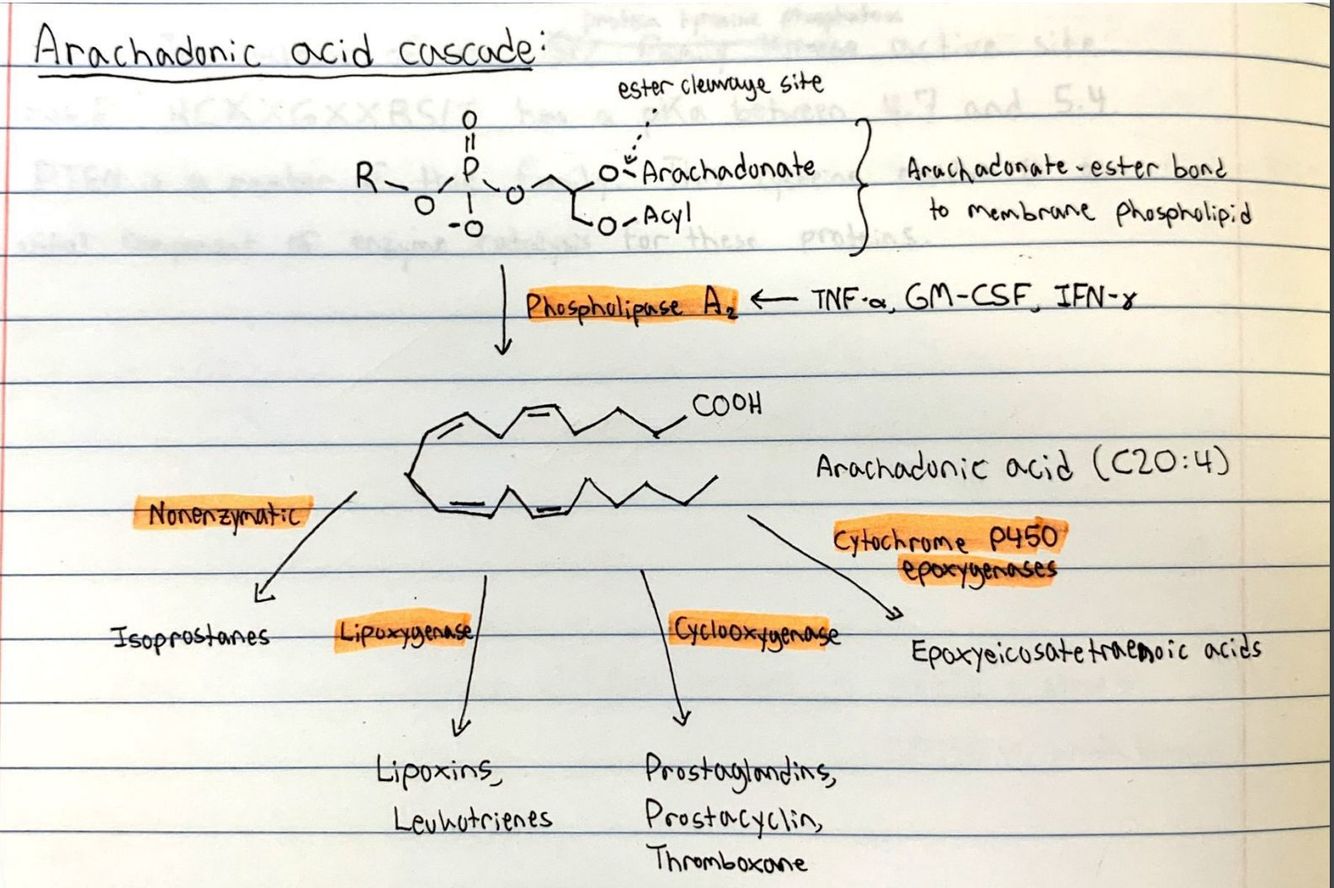 Arachadonic acid cascade:
ester cleavage site
O
R O P O O Arachadonate
-O O Acyl
Arachadonate-ester bond
to membrane phospholipid
Phospholipase A₂ ← TNF-α, GM-CSF, IFN-γ
COOH
Arachadonic acid (C20:4)
Nonenzymatic
Cytochrome P450
epoxygenases
Isoprostanes
Lipoxygenase
Cyclooxygenase
Epoxyeicosatetraenoic acids
Lipoxins,
Leukotrienes
Prostaglandins,
Prostacyclin,
Thromboxane